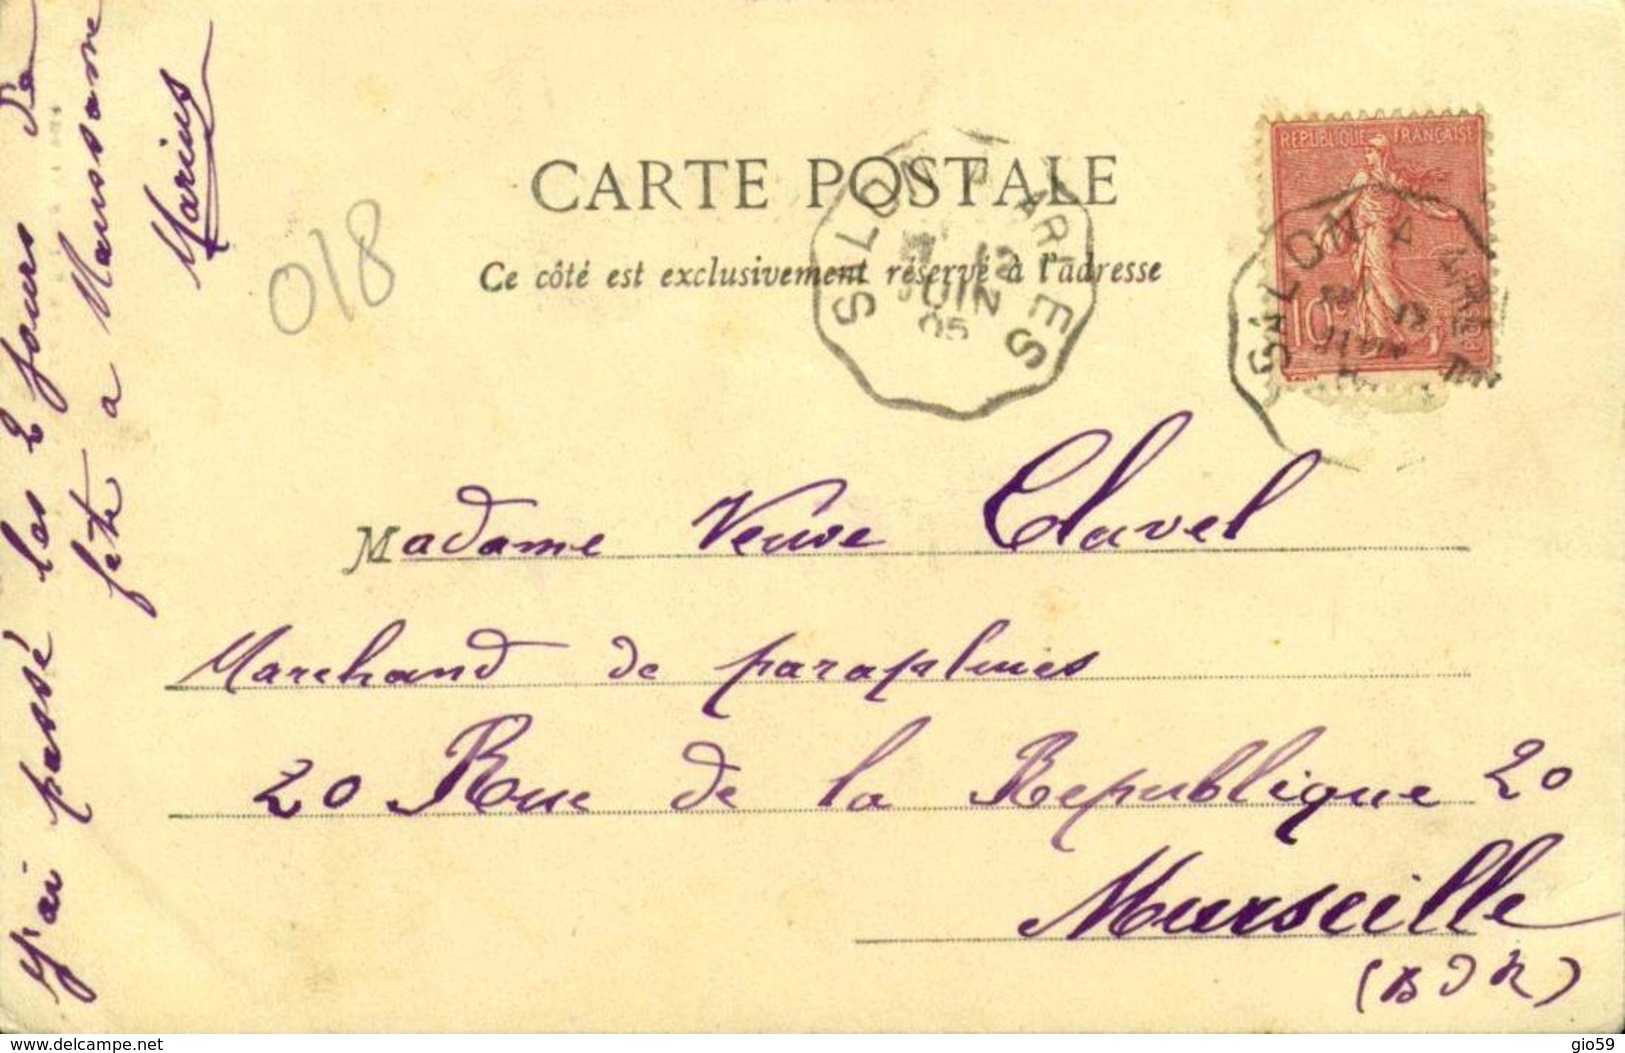 CARTE POSTALE
Ce côté est exclusivement réservé à l'adresse
REPUBLIQUE FRANÇAISE
10c
SALON A ARLES
12
JUIN
05
018
Madame Veuve Clavel
Marchand de parapluies
20 Rue de la Republique 20
Marseille
(B D R)
J'ai passé les 2 jours de
fete a Maussane
Marius
delcampe.net
gio59